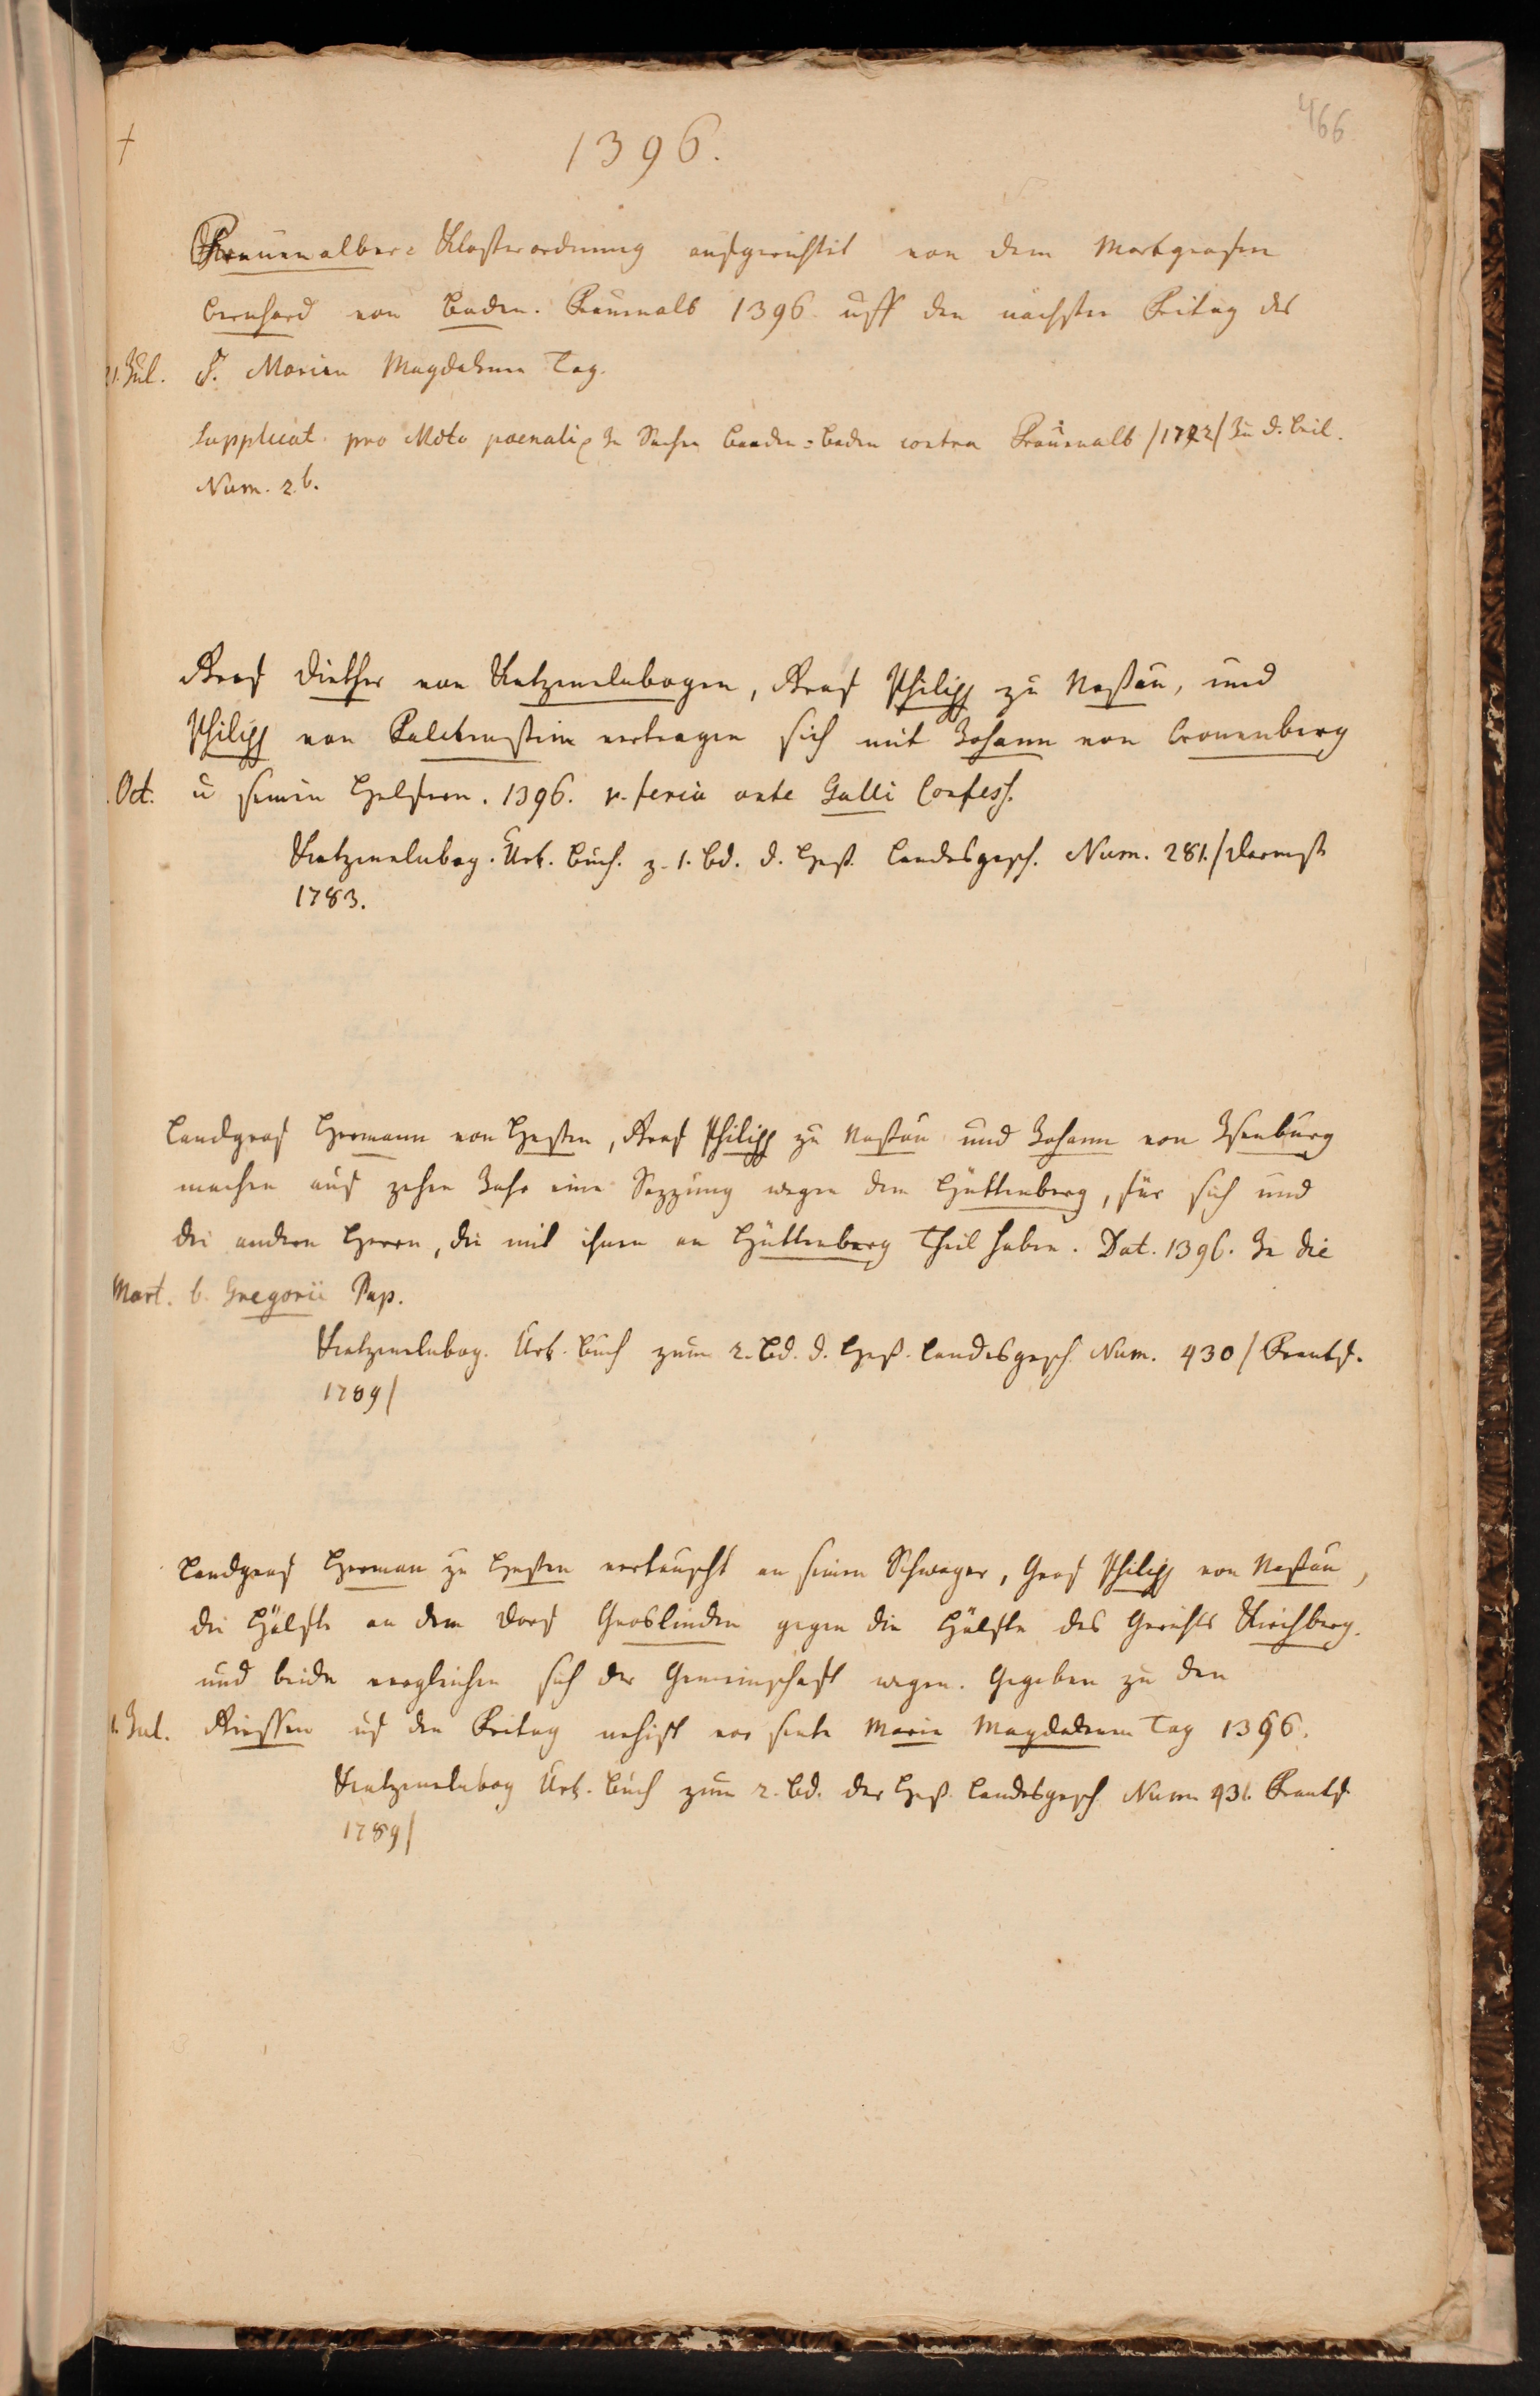 466
†
1396.
Frauenalber= Klosterordnung aufgerichtet von dem Markgrafen
Bernhard von Baden. Frauenalb 1396. uff den nächsten Fritag des
21. Jul. S. Marien Magdalenen Tag.
Supplicat. pro Mdto poenali in Sachen Baaden=Baden contra Frauenalb /1722/ In d. Beil.
Num. 2. b.
Graf Diether von Katzenelnbogen, Graf Philipp zu Nassau, und
Philipp von Falckenstein vertragen sich mit Johann von Cronenberg
Oct. u seinen Helfern. 1396. v. feria ante Galli Confess.
Katzenelnbog. Urk. Buch. z. 1. Bd. d. Heß. Landesgesch. Num. 281. /Darmst
1783.
Landgraf Hermann von Hessen, Graf Philipp zu Nassau und Johann von Isenburg
machen auf zehen Jahr eine Sazzung wegen dem Hüttenberg, für sich und
die andern Herrn, die mit ihnen an Hüttenberg Theil haben. Dat. 1396. In die
Mart. b. Gregorii Pap.
Katzenelnbog. Urk. Buch zum 2. Bd. d. Heß. Landesgesch. Num. 430 / Frankf.
1789/
Landgraf Herman zu Hessen vertauscht an seinen Schwager, Graf Philipp von Nassau,
die Hälfte an dem Dorf Groslinden gegen die Hälfte des Gerichts Kirchberg.
und beide vergleichen sich der Gemeinschaft wegen. Gegeben zu den
1. Jul. Giessen uf den Fritag nehist vor sente Marie Magdalenen Tag 1396.
Katzenelnbog Urk. Buch zum 2. Bd. der Heß. Landesgesch Num 431. Frankf.
1789/